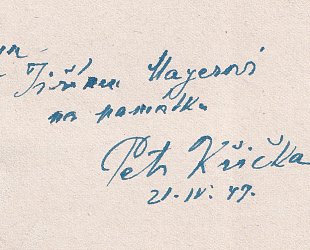 Jiřímu Mayerovi
na památku
Petr Křička
21-IV: 47.